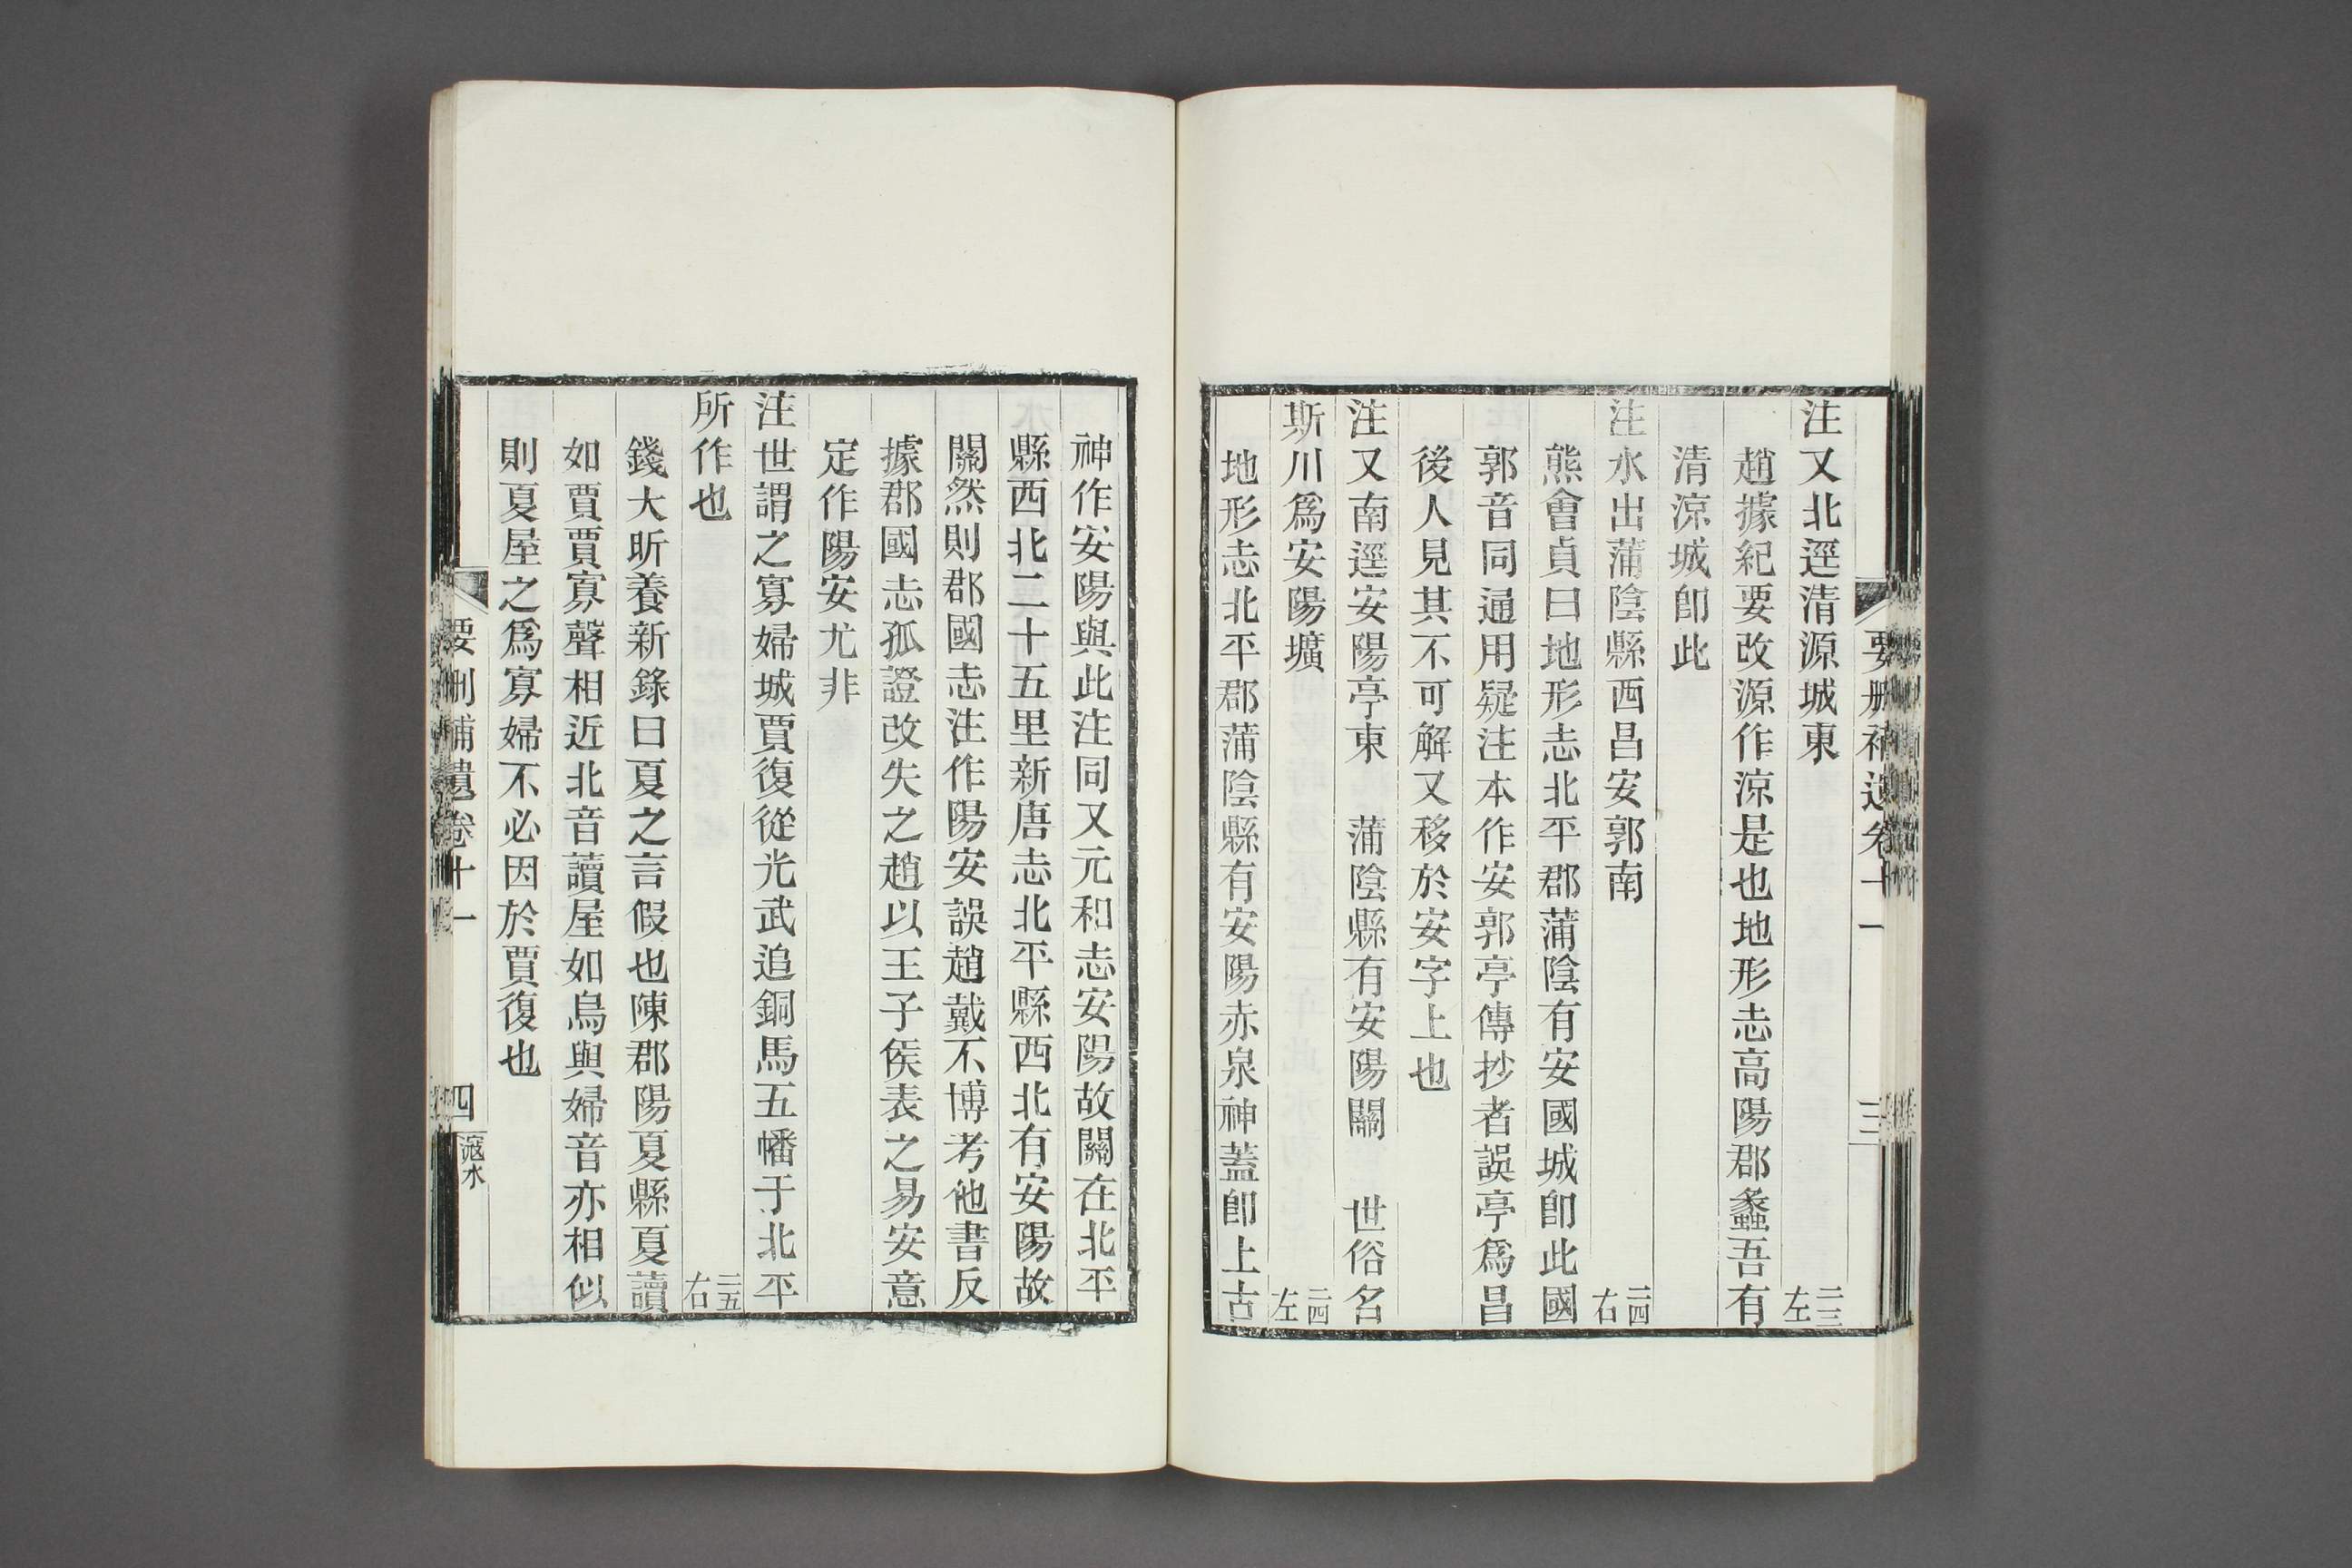 要刪補遺卷十一
三
注又北逕清源城東 二三左
趙據紀要改源作涼是也地形志高陽郡蠡吾有
清涼城卽此
注水出蒲陰縣西昌安郭南 二四右
熊會貞曰地形志北平郡蒲陰有安國城卽此國
郭音同通用疑注本作安郭亭傳抄者誤亭爲昌
後人見其不可解又移於安字上也
注又南逕安陽亭東　蒲陰縣有安陽關　世俗名
斯川爲安陽壙 二四左
地形志北平郡蒲陰縣有安陽赤泉神蓋卽上古
神作安陽與此注同又元和志安陽故關在北平
縣西北二十五里新唐志北平縣西北有安陽故
關然則郡國志注作陽安誤趙戴不博考他書反
據郡國志孤證改失之趙以王子侯表之易安意
定作陽安尤非
注世謂之寡婦城賈復從光武追銅馬五幡于北平
所作也 二五右
錢大昕養新錄曰夏之言假也陳郡陽夏縣夏讀
如賈賈寡聲相近北音讀屋如烏與婦音亦相似
則夏屋之爲寡婦不必因於賈復也
要刪補遺卷十一
四
滱水